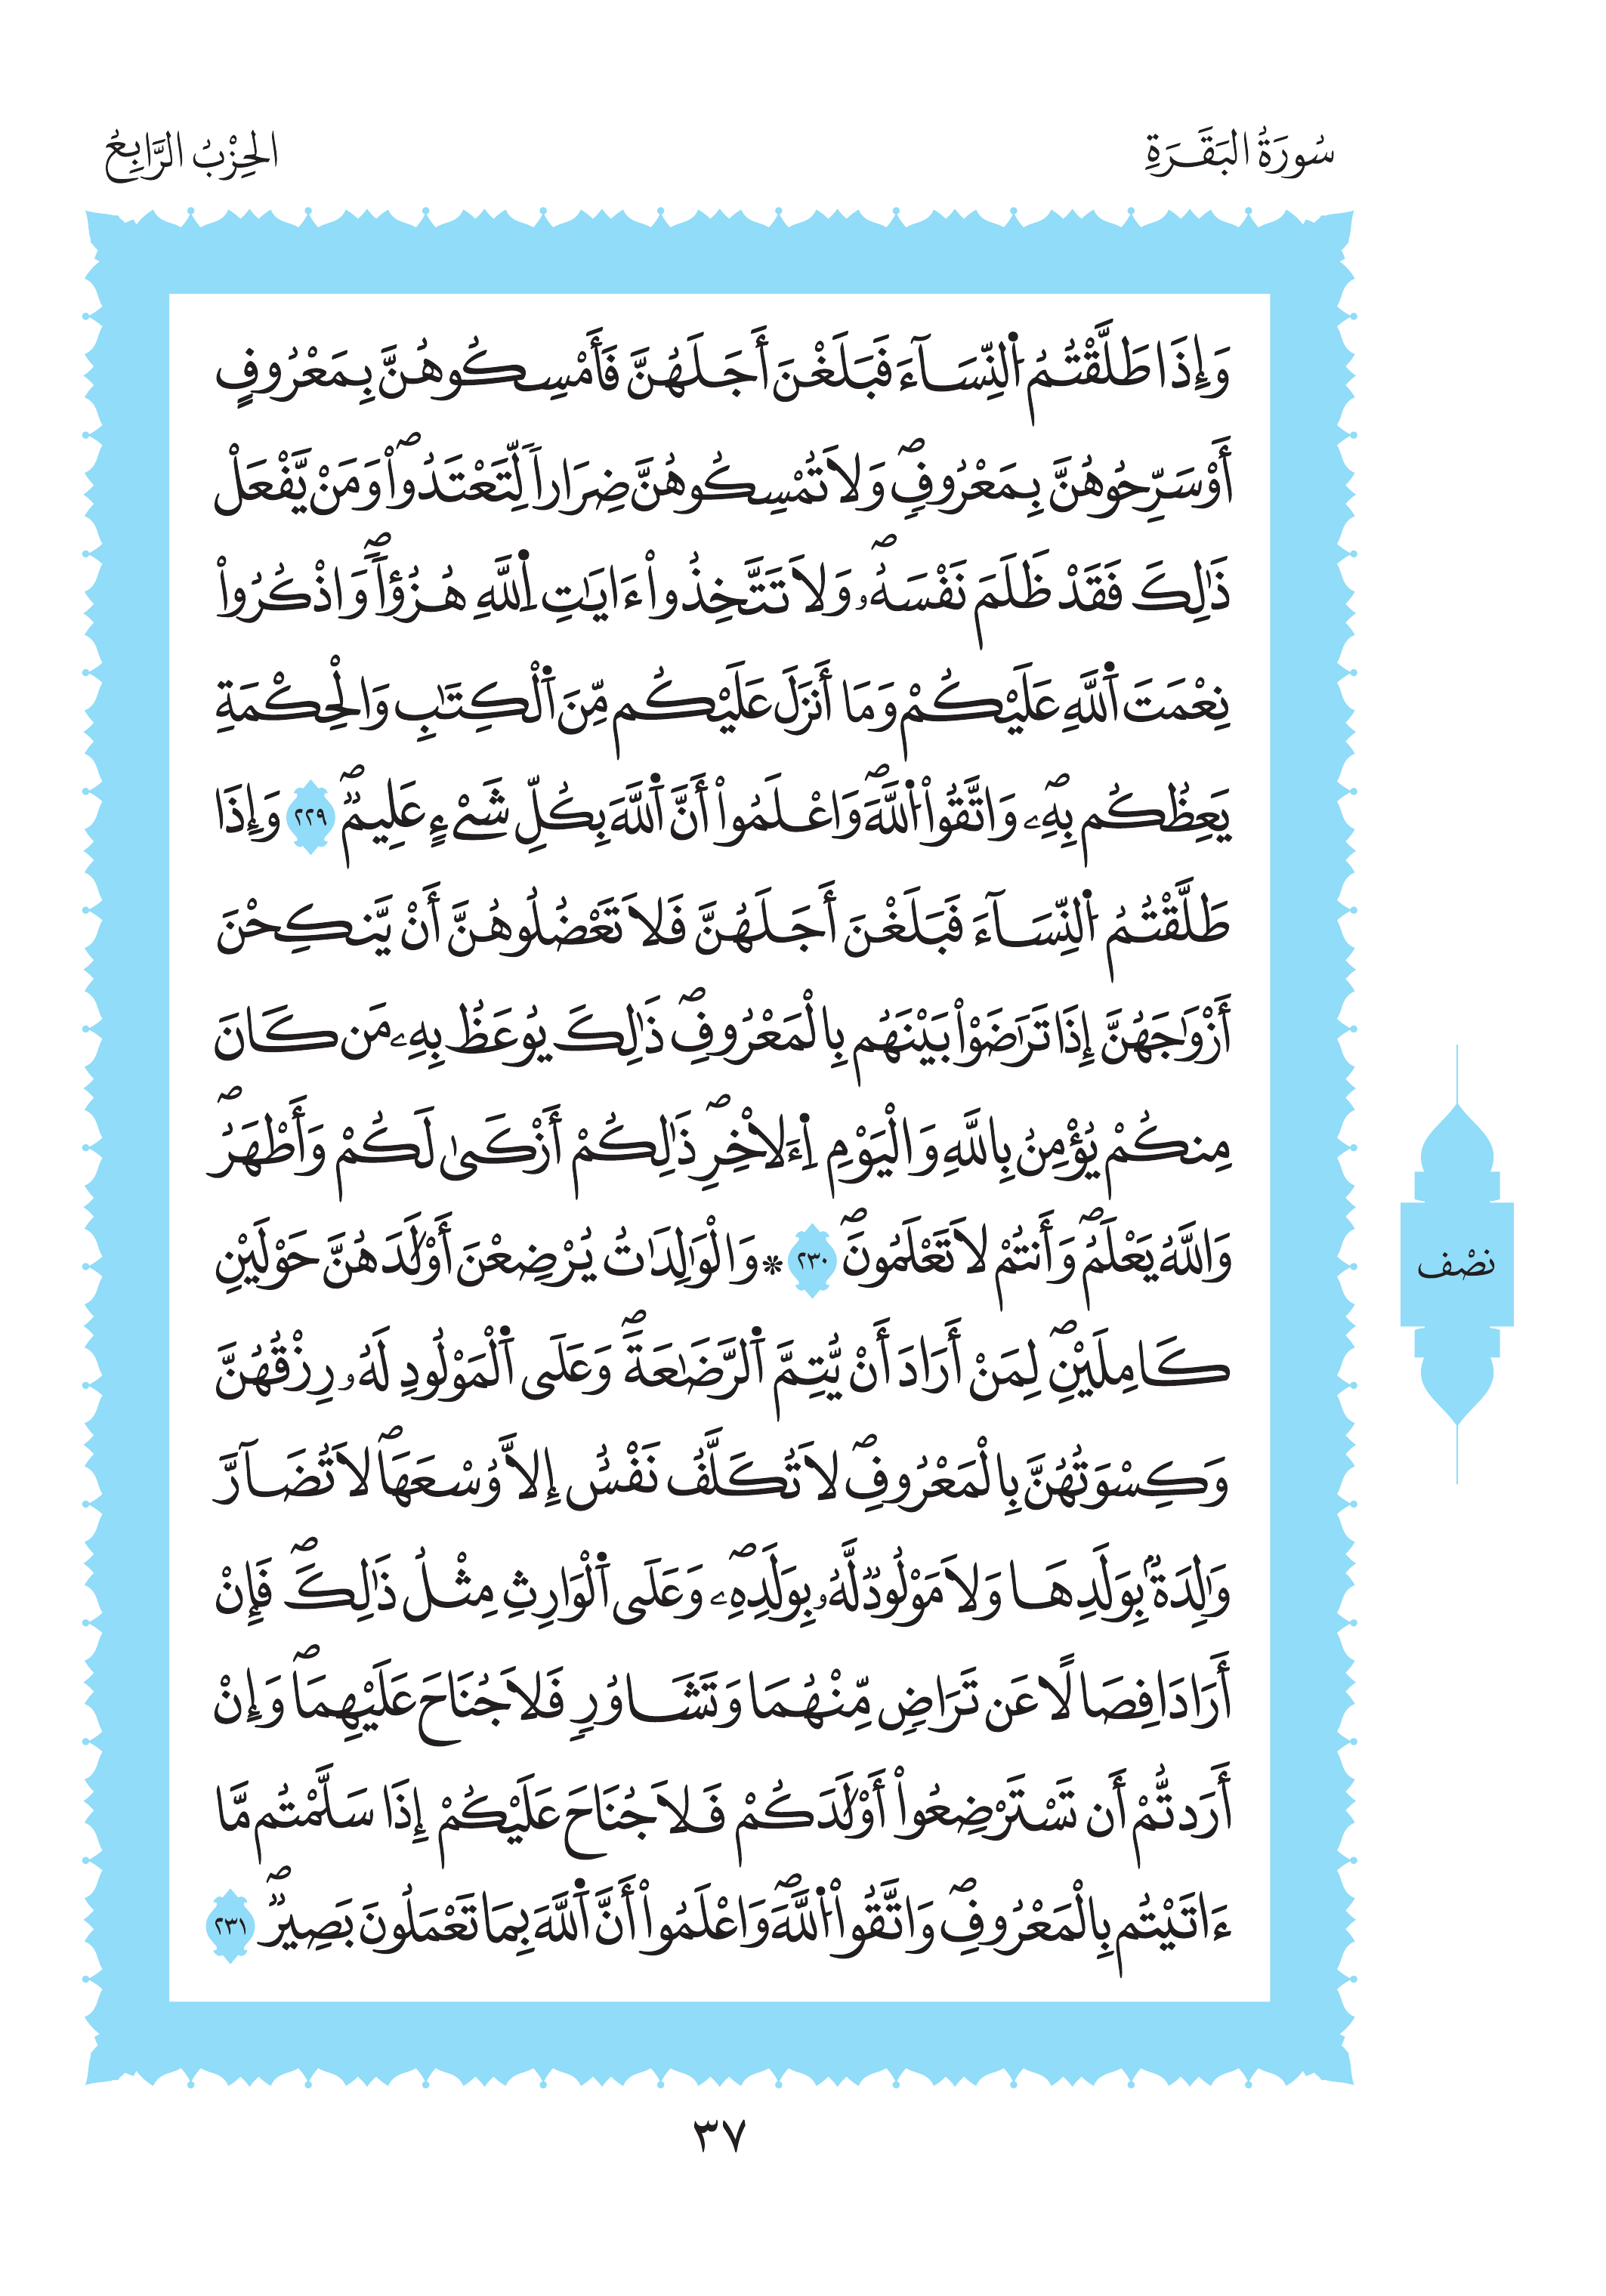 سُورَةُ البَقَرَةِ
الحِزْبُ الرَّابِعُ
وَإِذَا طَلَّقْتُمُ اُ۬لنِّسَآءَ فَبَلَغْنَ أَجَلَهُنَّ فَأَمْسِكُوهُنَّ بِمَعْرُوفٍ
أَوْ سَرِّحُوهُنَّ بِمَعْرُوفٖۖ وَلَا تُمْسِكُوهُنَّ ضِرَاراٗ لِّتَعْتَدُواْۖ وَمَنْ يَّفْعَلْ
ذَٰلِكَ فَقَدْ ظَلَمَ نَفْسَهُۥۖ وَلَا تَتَّخِذُواْ ءَايَٰتِ اِ۬للَّهِ هُزُؤاٗۖ وَاذْكُرُواْ
نِعْمَتَ اَ۬للَّهِ عَلَيْكُمْ وَمَا أَنزَلَ عَلَيْكُم مِّنَ اَ۬لْكِتَٰبِ وَالْحِكْمَةِ
يَعِظُكُم بِهِۦۖ وَاتَّقُواْ اُ۬للَّهَۖ وَاعْلَمُواْ أَنَّ اَ۬للَّهَ بِكُلِّ شَيْءٍ عَلِيمٞۖ ٢٢٩ وَإِذَا
طَلَّقْتُمُ اُ۬لنِّسَآءَ فَبَلَغْنَ أَجَلَهُنَّ فَلَا تَعْضُلُوهُنَّ أَنْ يَّنكِحْنَ
أَزْوَٰجَهُنَّ إِذَا تَرَٰضَوْاْ بَيْنَهُم بِالْمَعْرُوفِۖ ذَٰلِكَ يُوعَظُ بِهِۦ مَن كَانَ
مِنكُمْ يُؤْمِنُ بِاللَّهِ وَالْيَوْمِ اِ۬ءَلَاخِرِۖ ذَٰلِكُمْ أَزْكَىٰ لَكُمْ وَأَطْهَرُۖ
وَاللَّهُ يَعْلَمُۖ وَأَنتُمْ لَا تَعْلَمُونَۖ ٢٣٠ * وَالْوَٰلِدَٰتُ يُرْضِعْنَ أَوْلَٰدَهُنَّ حَوْلَيْنِ
كَامِلَيْنِۖ لِمَنْ أَرَادَ أَنْ يُّتِمَّ اَ۬لرَّضَٰعَةَۖ وَعَلَى اَ۬لْمَوْلُودِ لَهُۥ رِزْقُهُنَّ
وَكِسْوَتُهُنَّ بِالْمَعْرُوفِۖ لَا تُكَلَّفُ نَفْسٌ إِلَّا وُسْعَهَاۖ لَا تُضَآرَّ
وَٰلِدَةُۢ بِوَلَدِهَا وَلَا مَوْلُودٞ لَّهُۥ بِوَلَدِهِۦۖ وَعَلَى اَ۬لْوَارِثِ مِثْلُ ذَٰلِكَۖ فَإِنْ
أَرَادَا فِصَالًا عَن تَرَاضٖ مِّنْهُمَا وَتَشَاوُرٖ فَلَا جُنَاحَ عَلَيْهِمَاۖ وَإِنْ
أَرَدتُّمْ أَن تَسْتَرْضِعُواْ أَوْلَٰدَكُمْ فَلَا جُنَاحَ عَلَيْكُمْ إِذَا سَلَّمْتُم مَّا
ءَاتَيْتُم بِالْمَعْرُوفِۖ وَاتَّقُواْ اُ۬للَّهَۖ وَاعْلَمُواْ أَنَّ اَ۬للَّهَ بِمَا تَعْمَلُونَ بَصِيرٞۖ ٢٣١
نصْف
٣٧